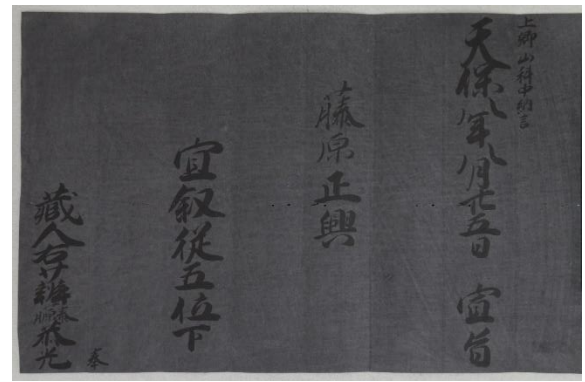 上卿 山科中納言
天保八年八月廿五日 宣旨
藤原正興
宜叙従五位下
藏人右少辨 恭光 奉